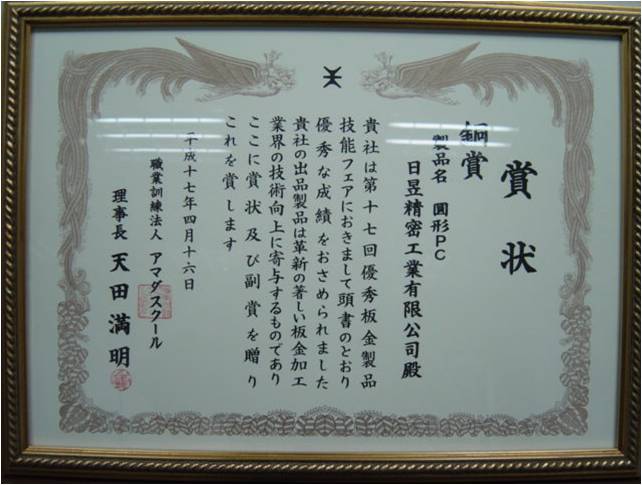 賞状
銅賞
製品名 圓形PC
日昱精密工業有限公司殿
貴社は第十七回優秀板金製品
技能フェアにおきまして頭書のとおり
優秀な成績をおさめられました
貴社の出品製品は革新の著しい板金加工
業界の技術向上に寄与するものであり
ここに賞状及び副賞を贈り
これを賞します
平成十七年四月十六日
職業訓練法人 アマダスクール
理事長 天田満明